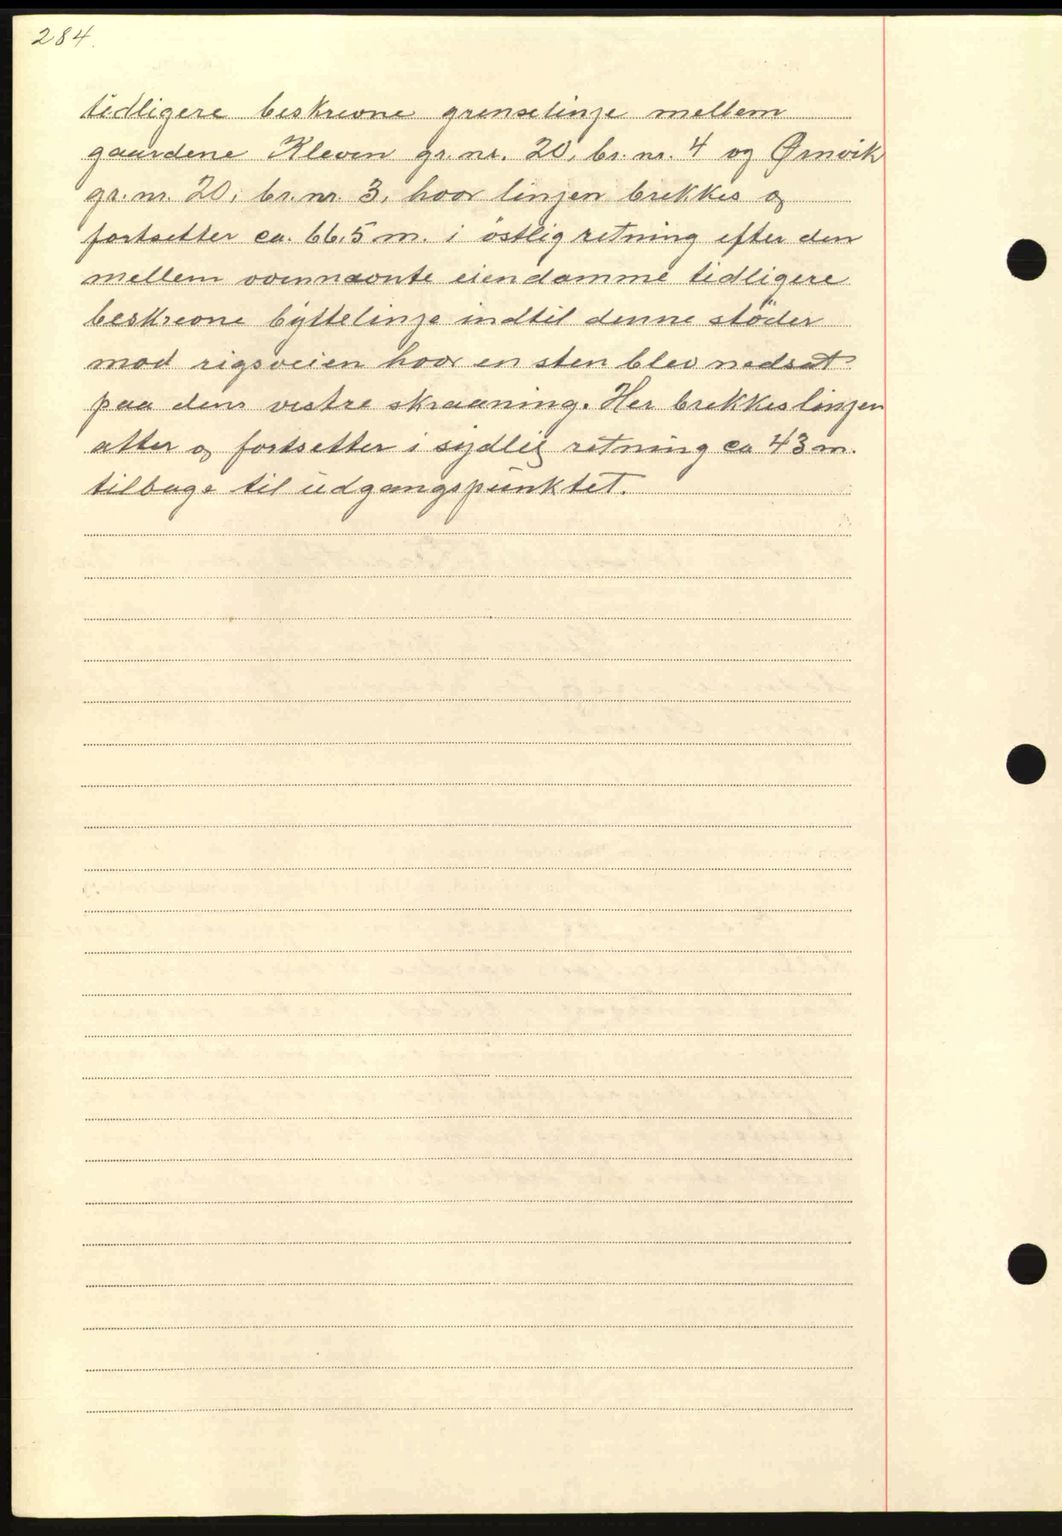 284.
tidligere beskrevne grenselinje mellem
gaardene Kleven gr. nr. 20, br. nr. 4 og Ørnvik
gr. nr. 20, br. nr. 3, hvor linjen brekkes og
fortsetter ca. 66.5 m. i østlig retning efter den
mellem ovennævnte eiendamme tidligere
beskrevne byttelinje indtil denne støder
mod rigsveien hvor en sten blev nedsat
paa dens vestre skraaning. Her brekkes linjen
atter og fortsetter i sydlig retning ca 43 m.
tilbage til udgangspunktet.